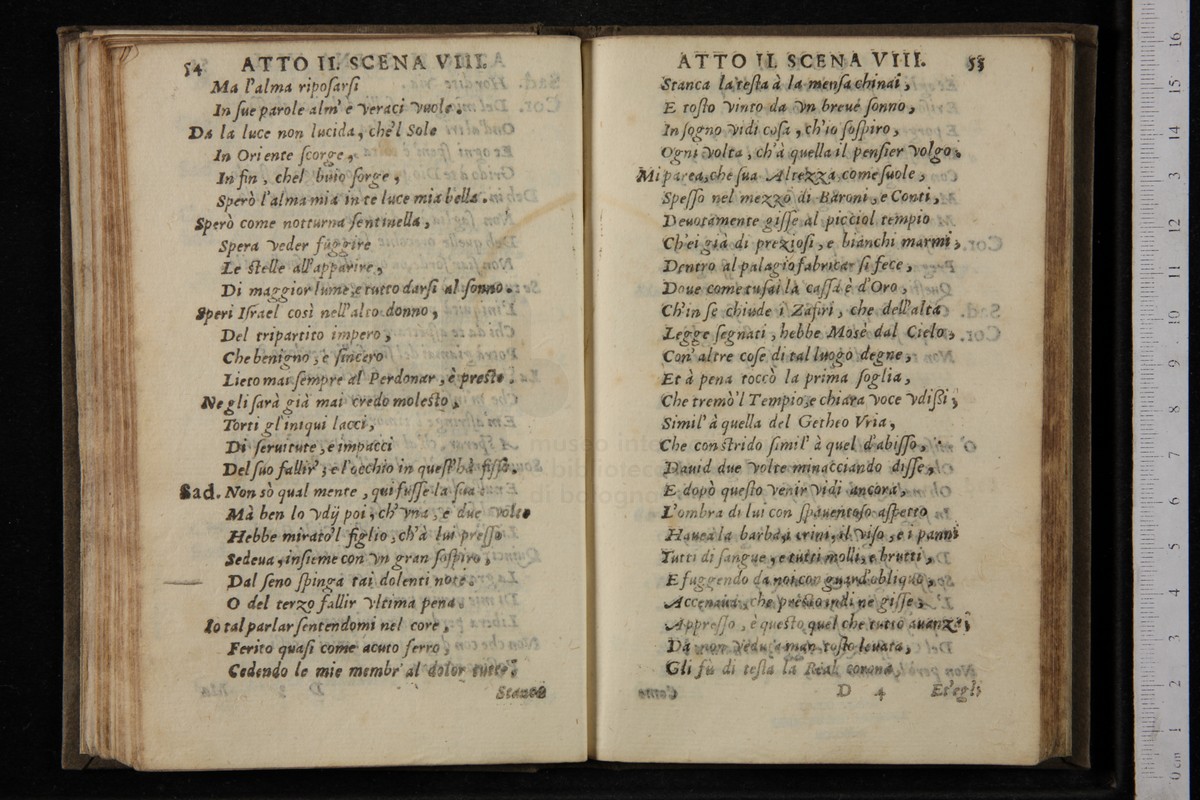 54 ATTO II. SCENA VIII.
Ma l'alma riposarsi
In sue parole alm' e veraci vuole.
Da la luce non lucida, che'l Sole
In Oriente scorge,
In fin, chel buio sorge,
Sperò l'alma mia in te luce mia bella.
Sperò come notturna sentinella,
Spera veder fuggire
Le stelle all'apparire,
Di maggior lume, e tutto darsi al sonno.
Speri Israel così nell'alto donno,
Del tripartito impero,
Che benigno, e sincero
Lieto mai sempre al Perdonar, è presto.
Ne gli sarà già mai credo molesto,
Torti gl'iniqui lacci,
Di seruitute, e impacci
Del suo fallir', e l'occhio in quest'hà fisso.
Sad. Non sò qual mente, qui fusse la sua
Mà ben lo vdij poi, ch'vna, e due volte
Hebbe mirato'l figlio, ch'à lui presso
Sedeua, insieme con vn gran sospiro,
Dal seno spinga tai dolenti note.
O del terzo fallir vltima pena.
Io tal parlar sentendomi nel core,
Ferito quasi come acuto ferro,
Cedendo le mie membr' al dolor tutte;
Stanca
ATTO II. SCENA VIII. 55
Stanca la testa à la mensa chinai,
E tosto vinto da vn breue sonno,
In sogno vidi cosa, ch'io sospiro,
Ogni volta, ch'à quella il pensier volgo.
Mi parea, che sua Altezza come suole,
Spesso nel mezzo di Baroni, e Conti,
Deuotamente gisse al picciol tempio
Ch'ei già di preziosi, e bianchi marmi,
Dentro al palagio fabricar si fece,
Doue come tu sai la cassa è d'Oro,
Ch'in se chiude i Zafiri, che dell'alta
Legge segnati, hebbe Mosè dal Cielo,
Con' altre cose di tal luogo degne,
Et à pena toccò la prima soglia,
Che tremò'l Tempio, e chiara voce vdissi,
Simil' à quella del Getheo Vria,
Che con strido simil' à quel d'abisso,
Dauid due volte minacciando disse,
E dopò questo venir vidi ancora,
L'ombra di lui con spauentoso aspetto
Hauea la barba, i crini, il viso, e i panni
Tutti di sangue, e tutti molli, e brutti,
E fuggendo da noi con guard'obliquo,
Accenaua, che presto indi ne gisse;
Appresso, e questo quel che tutto auanza,
Da non vedut'a man tosto leuata,
Gli fù di testa la Real corona,
D 4 Et'egli